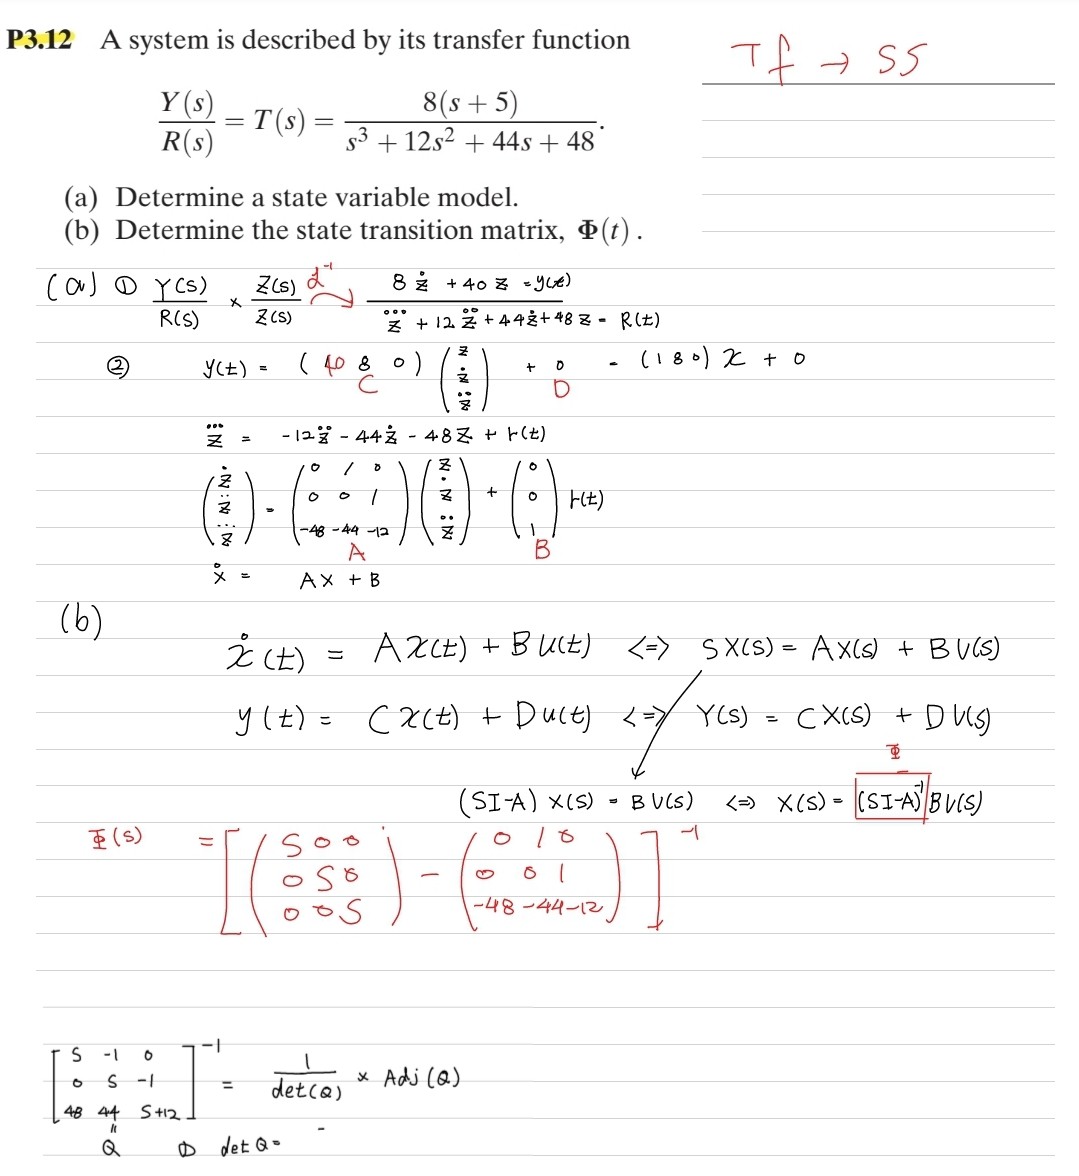 P3.12 A system is described by its transfer function
Tf → SS
Y(s)/R(s) = T(s) = 8(s + 5)/(s³ + 12s² + 44s + 48).
(a) Determine a state variable model.
(b) Determine the state transition matrix, Φ(t).
(a) ① Y(s)/R(s) × Z(s)/Z(s) ℒ⁻¹ 8ż + 40z = y(t)
z⃛ + 12z̈ + 44ż + 48z = R(t)
② y(t) = (40 8 0) (z ż z̈) + 0 = (1 8 0) x + 0
C D
z⃛ = -12z̈ - 44ż - 48z + r(t)
(ż z̈ z⃛) = (0 1 0
0 0 1
-48 -44 -12) (z ż z̈) + (0 0 1) r(t)
A B
ẋ = Ax + B
(b)
ẋ(t) = Ax(t) + Bu(t) <=> SX(s) = AX(s) + BU(s)
y(t) = Cx(t) + Du(t) <=> Y(s) = CX(s) + DU(s)
Φ
(SI-A) X(s) = BU(s) <=> X(s) = (SI-A)⁻¹ BU(s)
Φ(s) = [(S 0 0
0 S 0
0 0 S) - (0 1 0
0 0 1
-48 -44 -12)]⁻¹
[S -1 0
0 S -1
48 44 S+12]⁻¹ = 1/det(Q) × Adj(Q)
"
Q ① det Q =